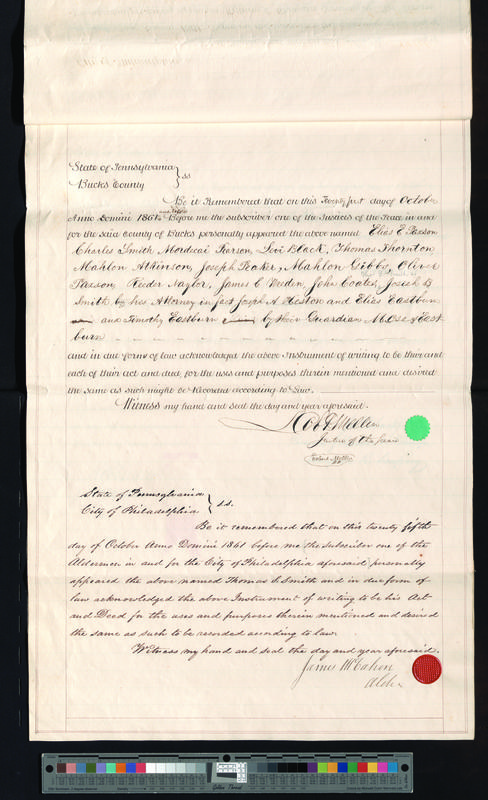 State of Pennsylvania
Bucks County } ss
Be it Remembered that on this Twenty first day of October
Anno Domini 1861 Before me the subscriber one of the Justices of the Peace in and
for the said County of Bucks personally appeared the above named Elias E Paxson
Charles Smith Mordecai Pearson Levi Black, Thomas Thornton
Mahlon Atkinson, Joseph Feaker, Mahlon Gibbs, Oliver
Paxson, Reeder Naylor, James C Weiden, John Coates, Josiah B
Smith by his Attorney in fact Joseph A Heston and Elias Eastburn
and Timothy Eastburn by their Guardian Moses East
burn
and in due form of law acknowledged the above Instrument of writing to be their and
each of their act and deed for the uses and purposes therein mentioned and desired
the same as such might be Recorded according to Law.
Witness my hand and seal the day and year aforesaid.
Justice of the peace
State of Pennsylvania
City of Philadelphia } ss.
Be it remembered that on this twenty fifth
day of October Anno Domini 1861 before me the subscriber one of the
Aldermen in and for the City of Philadelphia aforesaid personally
appeared the above named Thomas S Smith and in due form of
law acknowledged the above Instrument of writing to be his Act
and Deed for the uses and purposes therein mentioned and desired
the same as such to be recorded according to law.
Witness my hand and seal the day and year aforesaid.
James McCahen
Aldn